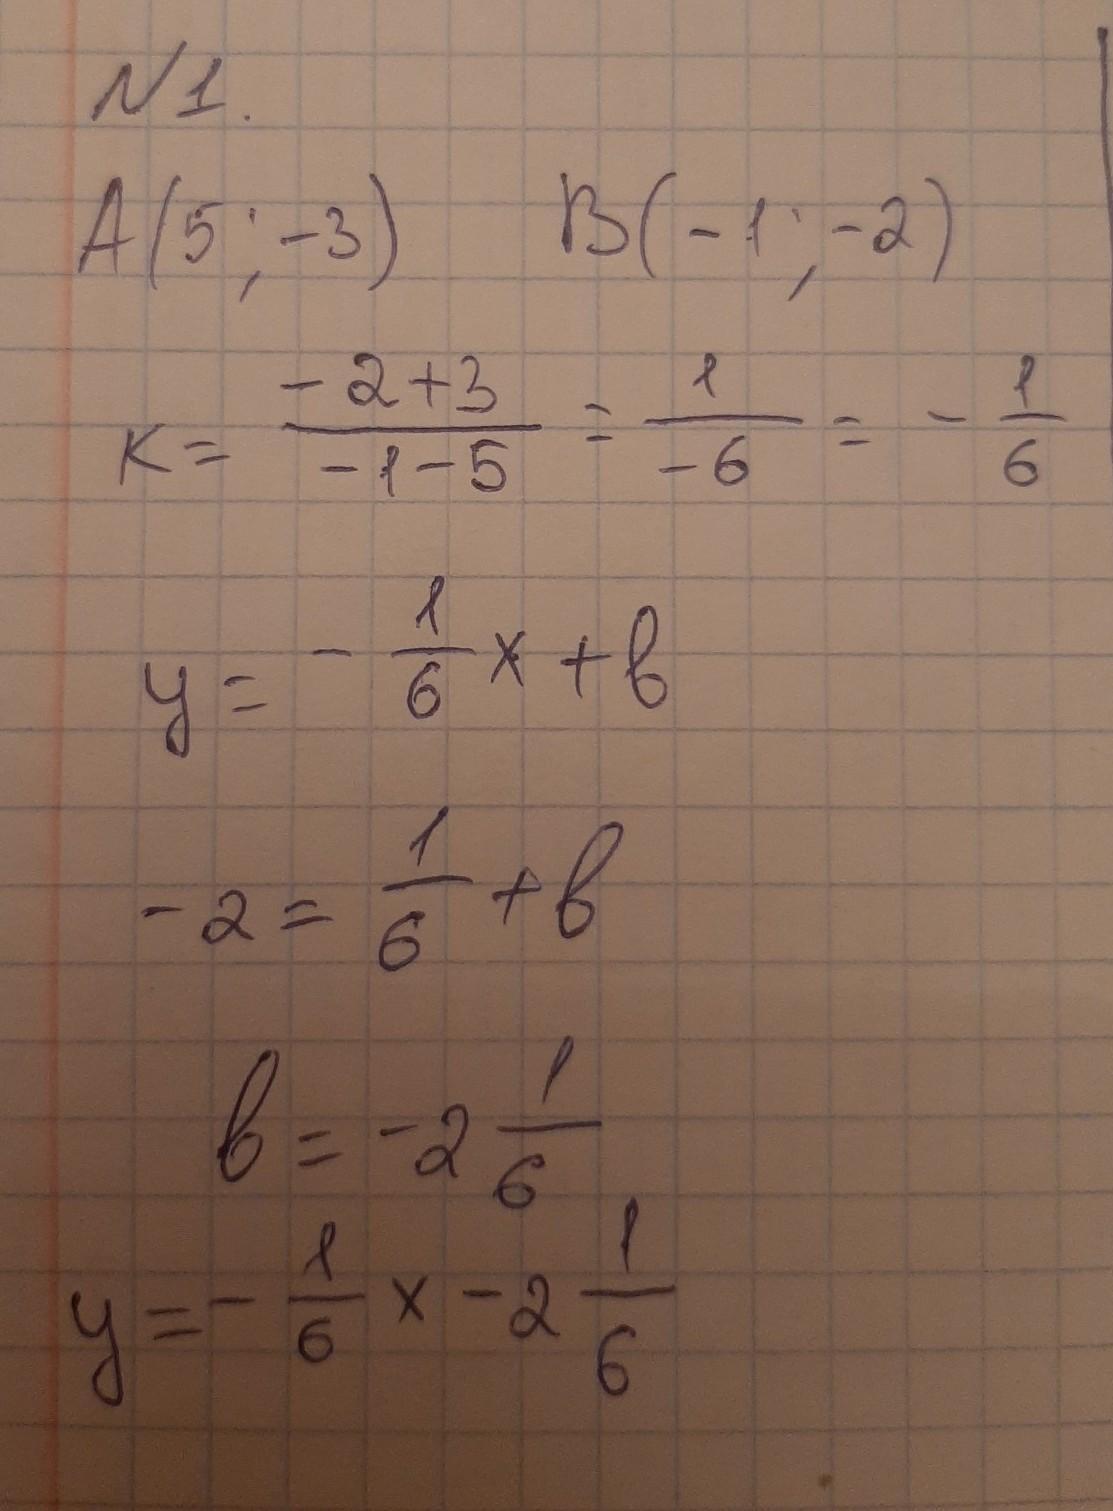 N1.
A(5; -3) B(-1; -2)
k = \frac{-2+3}{-1-5} = \frac{1}{-6} = -\frac{1}{6}
y = -\frac{1}{6}x + b
-2 = \frac{1}{6} + b
b = -2\frac{1}{6}
y = -\frac{1}{6}x - 2\frac{1}{6}